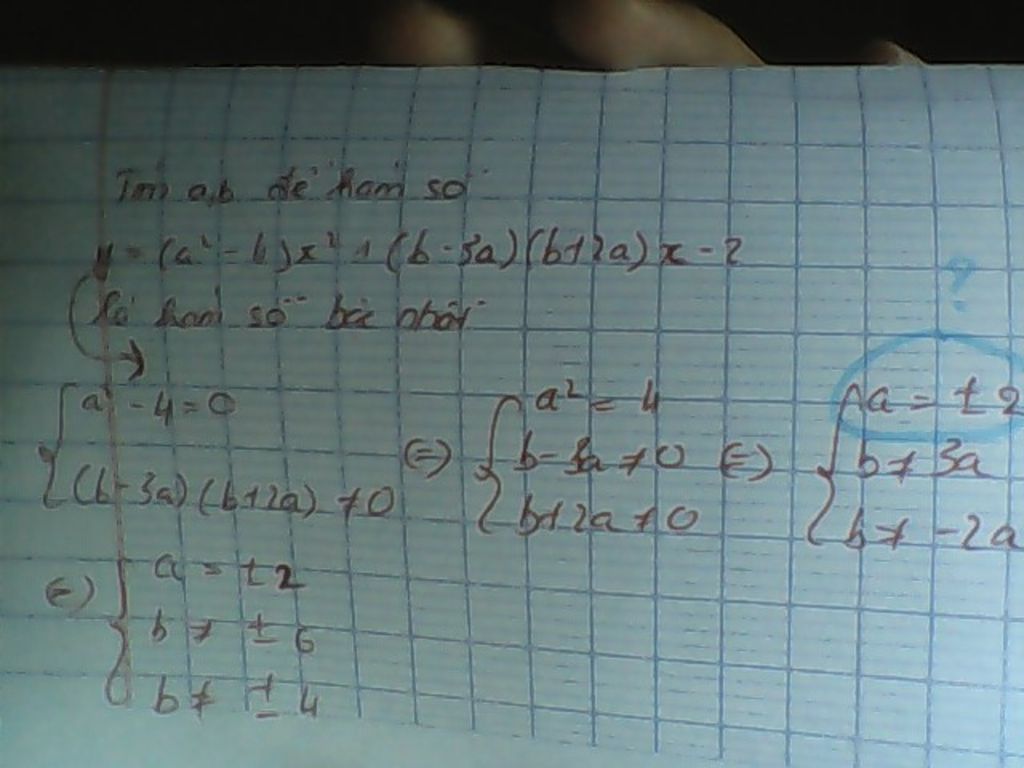 Tìm a,b để hàm số
y = (a² - 4)x² + (b - 3a)(b+2a)x - 2
là hàm số bậc nhất
?
{ a² - 4 = 0 ; (b - 3a)(b+2a) ≠ 0 (=) { a² = 4 ; b - 3a ≠ 0 ; b+2a ≠ 0 (=) { a = ±2 ; b ≠ 3a ; b ≠ -2a
(=) { a = ±2
b ≠ ±6
b ≠ ±4